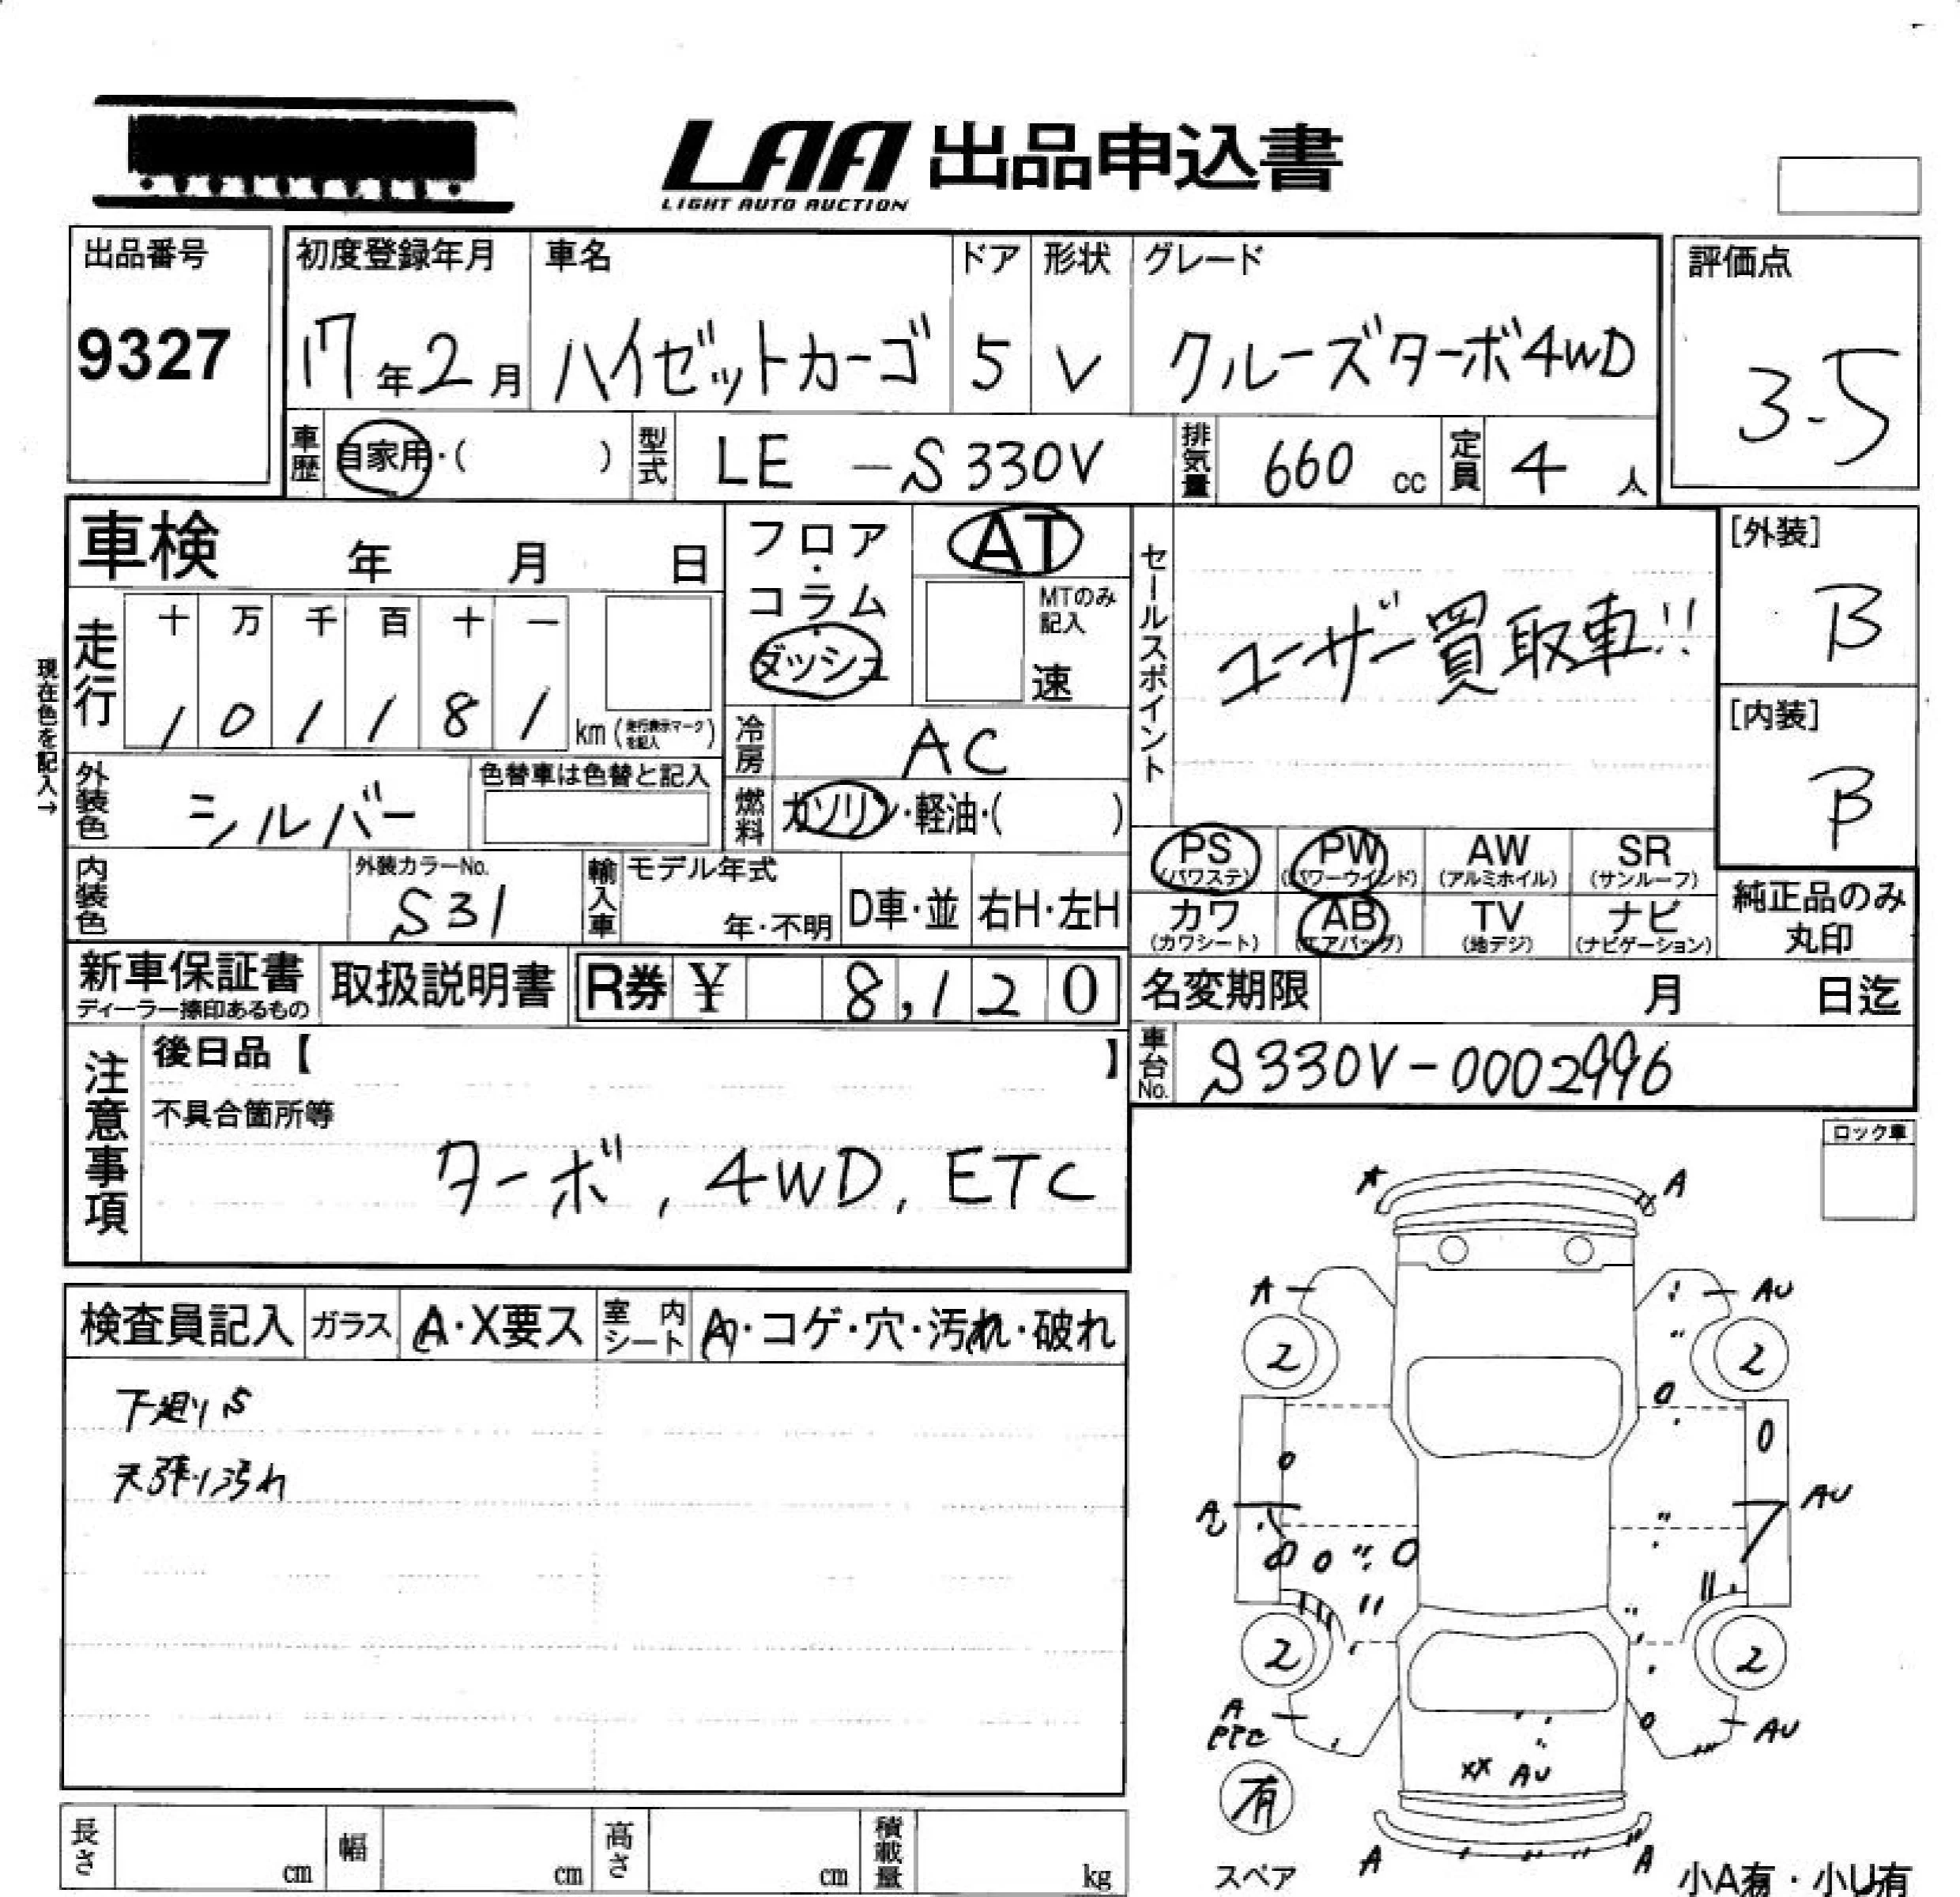 LAA 出品申込書
LIGHT AUTO AUCTION
出品番号
9327
初度登録年月
17年2月
車名
ハイゼットカーゴ
ドア
5
形状
V
グレード
クルーズターボ4WD
評価点
3.5
車歴 自家用・( )
型式 LE -S330V
排気量 660 cc
定員 4 人
車検 年 月 日
走行
十 万 千 百 十 一
1 0 1 1 8 1 km (走行表示マークを記入)
現在色を記入→
外装色 シルバー
色替車は色替と記入
内装色
外装カラーNo.
S31
輸入車
モデル年式
年・不明
D車・並
右H・左H
フロア・コラム・ダッシュ
AT
MTのみ記入
速
冷房 AC
燃料 ガソリン・軽油・( )
セールスポイント
ユーザー買取車!!
[外装]
B
[内装]
B
PS (パワステ)
PW (パワーウインド)
AW (アルミホイル)
SR (サンルーフ)
カワ (カワシート)
AB (エアバッグ)
TV (地デジ)
ナビ (ナビゲーション)
純正品のみ
丸印
新車保証書
ディーラー捺印あるもの
取扱説明書
R券 ¥ 8,120
名変期限 月 日迄
車台No. S330V-0002996
注意事項
後日品【 】
不具合箇所等
ターボ, 4WD, ETC
ロック車
検査員記入
ガラス A・X要ス
室内シート A・コゲ・穴・汚れ・破れ
下廻りS
天張り汚れ
A A
A AU
2 2
AU AU
2 2
A AU
XX AU
有
スペア
A A
小A有・小U有
長さ cm
幅 cm
高さ cm
積載量 kg